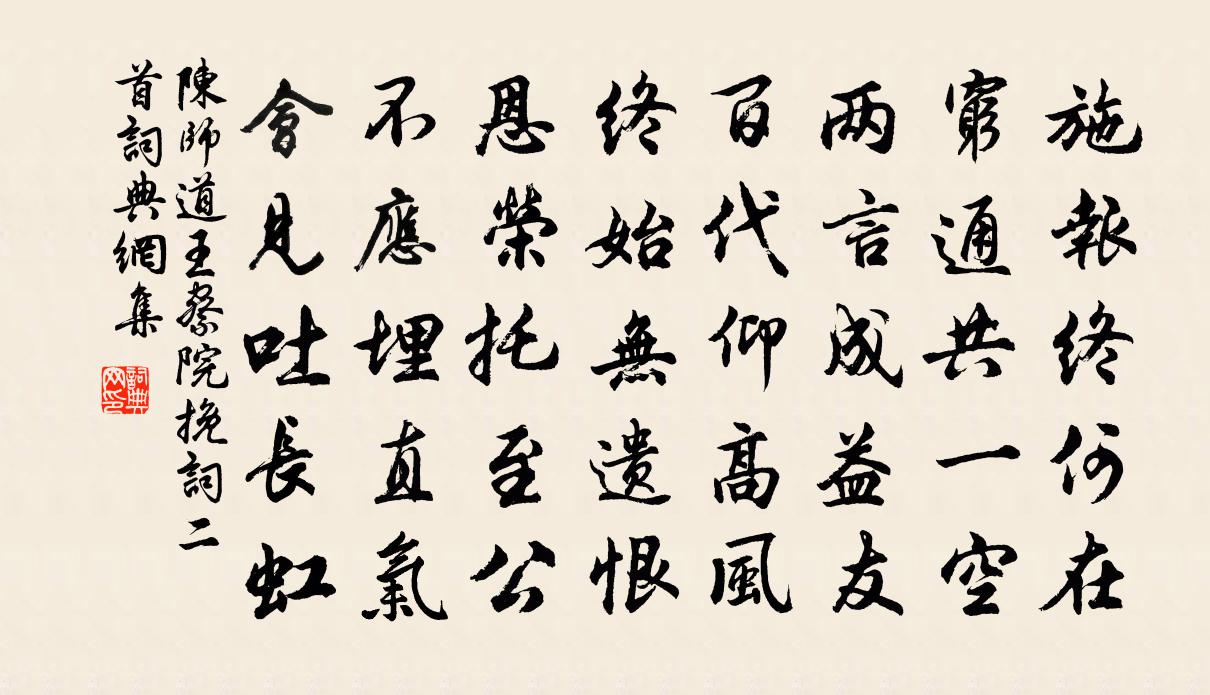 施報終何在
窮通共一空
两言成益友
百代仰高風
終始無遺恨
恩榮托至公
不應埋直氣
會見吐長虹
陳師道王察院挽詞二
首詞典網集
詞典
网印